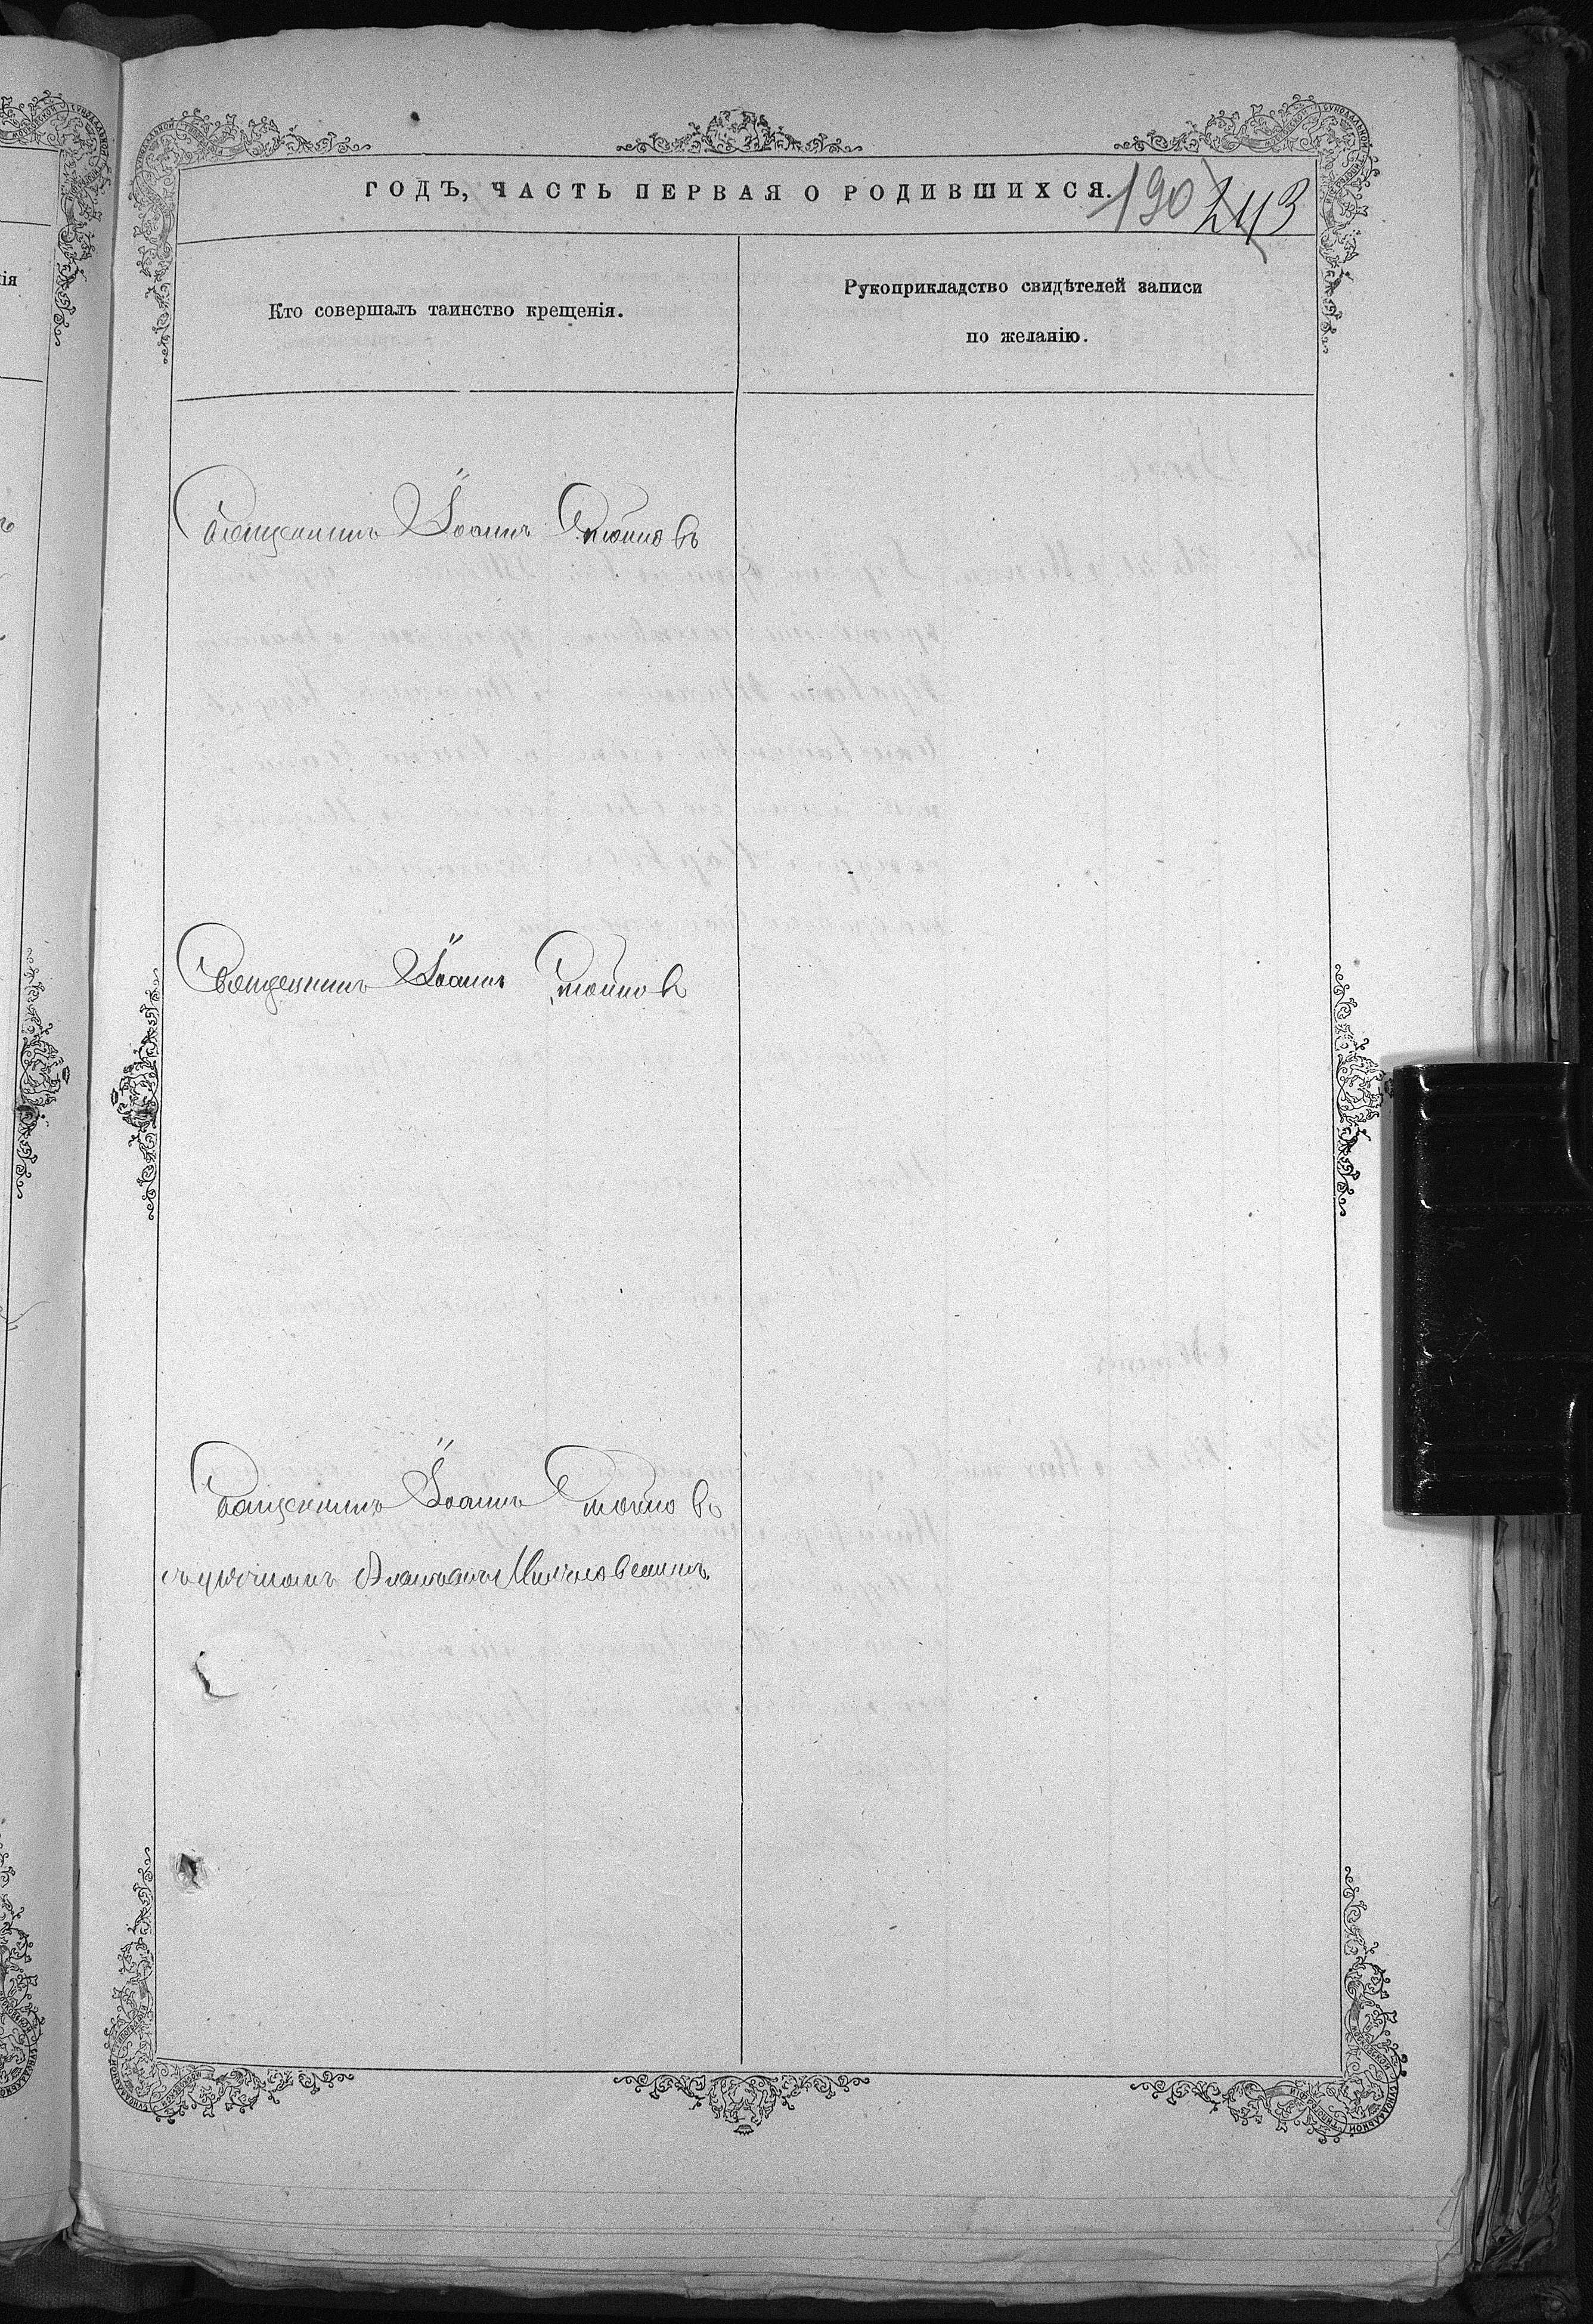 ГОДЪ, ЧАСТЬ ПЕРВАЯ О РОДИВШИХСЯ.
190 243
Кто совершалъ таинство крещенія.
Рукоприкладство свидѣтелей записи
по желанію.
Священникъ Іоаннъ Стойновъ
Священникъ Іоаннъ Стойновъ
Священникъ Іоаннъ Стойновъ
съ причтомъ